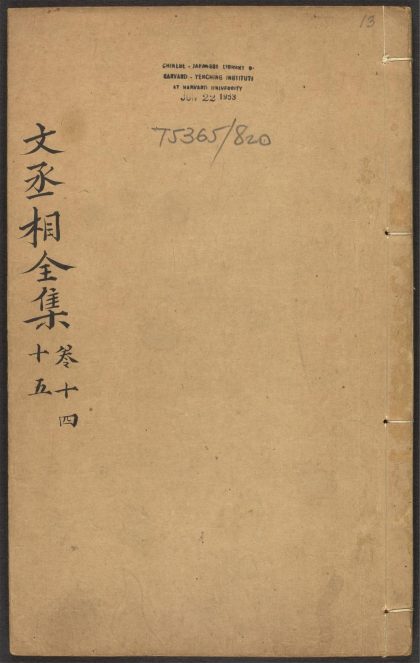 13
CHINESE - JAPANESE LIBRARY OF
HARVARD - YENCHING INSTITUTE
AT HARVARD UNIVERSITY
JUN 22 1953
T5365/820
文丞相全集
卷十四
十五